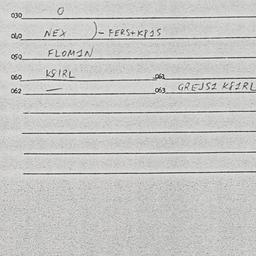 030 0
040 NEX )- FERS+K815
050 FLOM1N
060 K81RL 061
062 — 063 GREJS1 K81RL